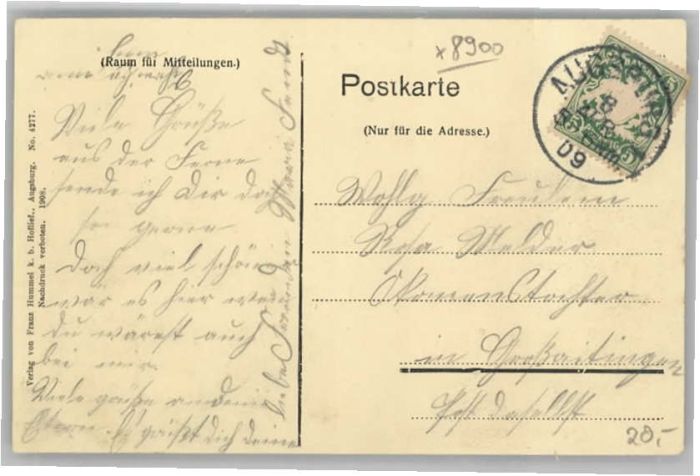 (Raum für Mitteilungen.)
Viele Grüße
aus der Ferne
sende ich Dir doch
so gerne
Doch viel schöner
wär es hier wen
du wärest auch
bei mir.
Viele grüße an deine
Eltern. Es grüßt dich deine
Verlag von Franz Hummel k. b. Hoflief., Augsburg. No. 4277.
Nachdruck verboten. 1908.
x 8900
Postkarte
(Nur für die Adresse.)
AUGSBURG
8
09
Wohlg Freulein
Rosa Melder
Ökonomenstochter
in Großaitingen
Post daselbst
20,-